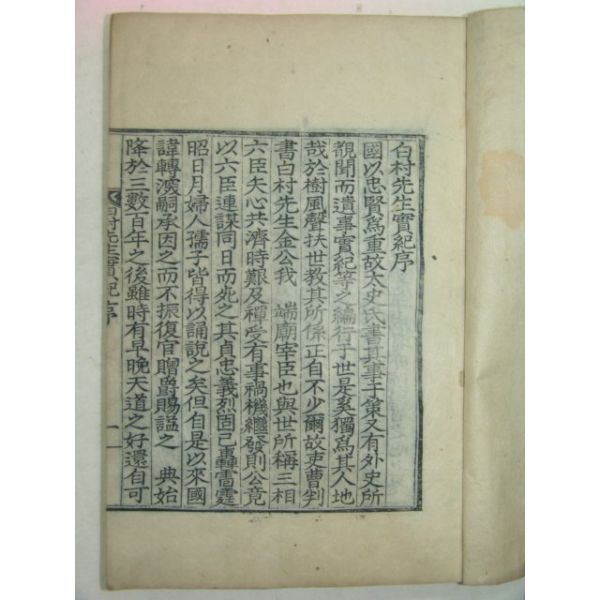 白村先生實紀序
國以忠賢爲重故太史氏書其事于策又有外史所
覩聞而遺事實紀等之編行于世是奚獨爲其人地
哉於樹風聲扶世敎其所係正自不少爾故吏曹判
書白村先生金公我　端廟宰臣也與世所稱三相
六臣矢心共濟時艱及禪受有事禍機繼發則公竟
以六臣連謀同日而死之其貞忠義烈固已轟雷霆
昭日月婦人孺子皆得以誦說之矣但自是以來國
諱轉深嗣承因之而不振復官贈爵賜謚之　典始
降於三數百年之後雖時有早晩天道之好還自可
白村先生實紀序　一